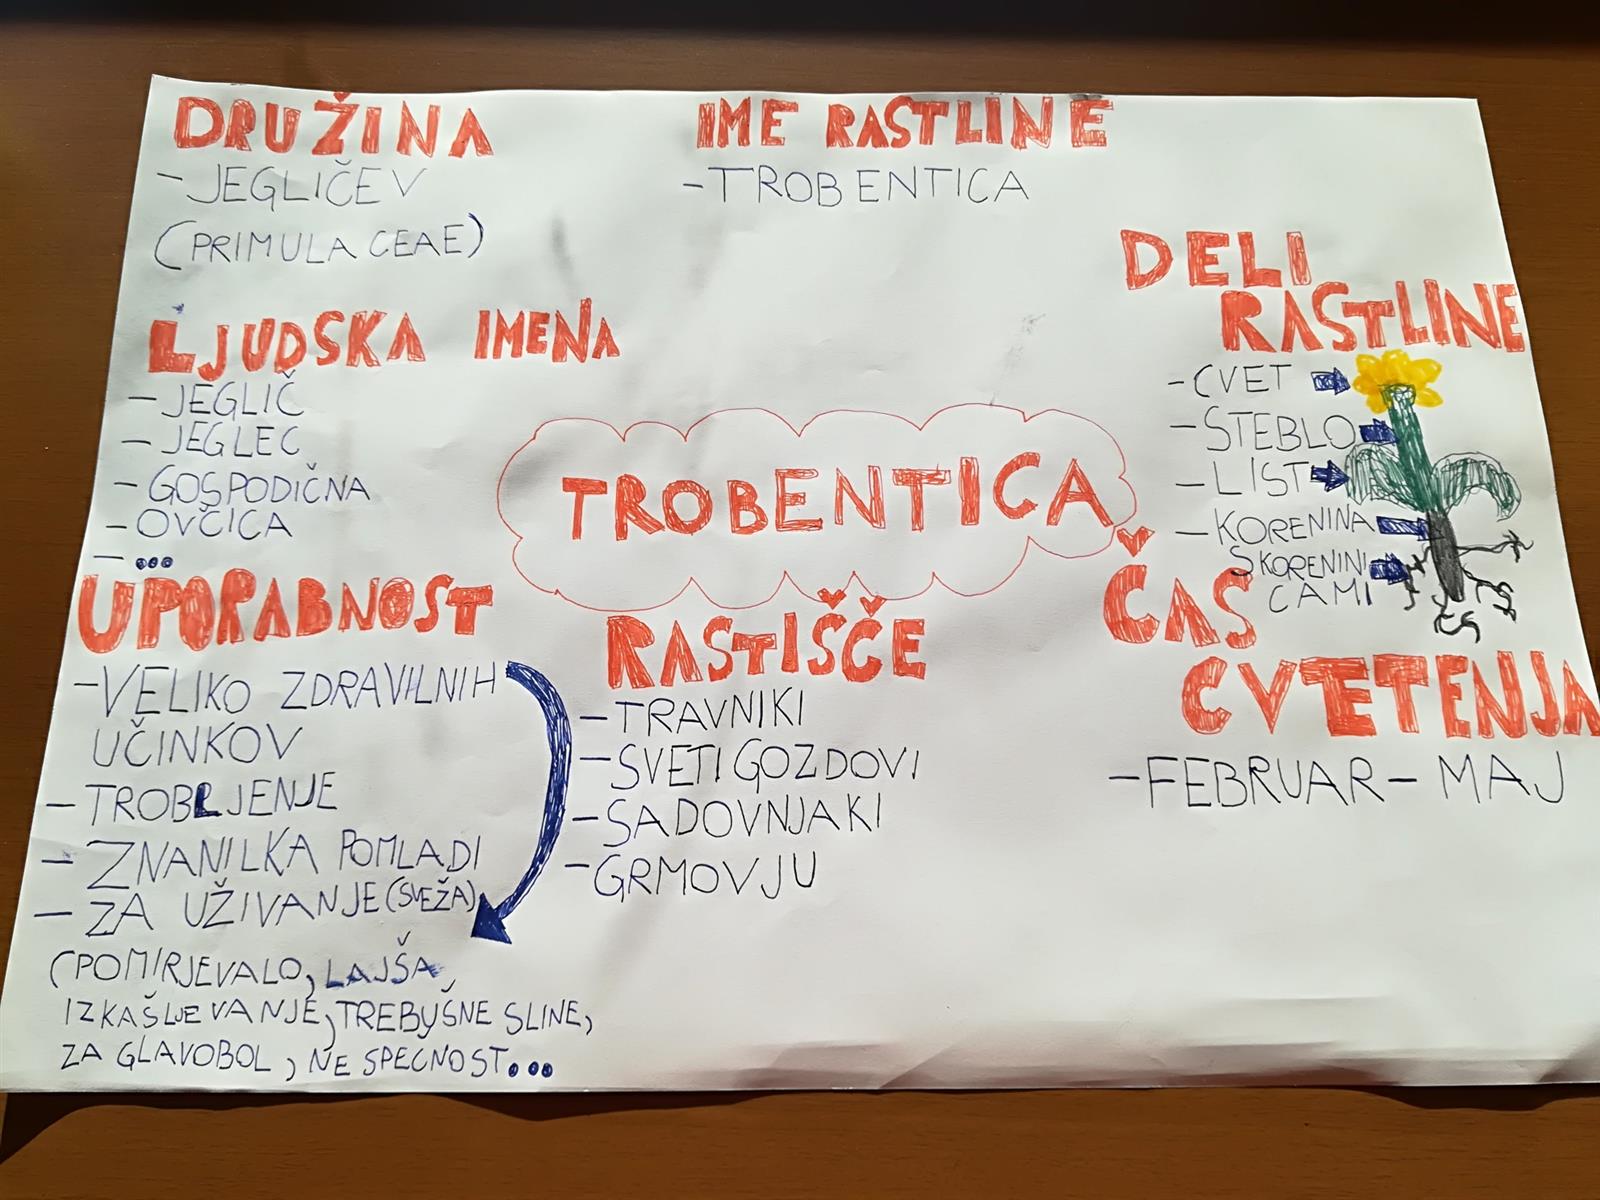 DRUŽINA
-JEGLIČEV
(PRIMULACEAE)
IME RASTLINE
-TROBENTICA
LJUDSKA IMENA
-JEGLIČ
-JEGLEC
-GOSPODIČNA
-OVČICA
-...
DELI
RASTLINE
-CVET
-STEBLO
-LIST
-KORENINA
S KORENINI
CAMI
TROBENTICA
UPORABNOST
-VELIKO ZDRAVILNIH
UČINKOV
-TROBLJENJE
-ZNANILKA POMLADI
-ZA UŽIVANJE (SVEŽA)
(POMIRJEVALO, LAJŠA,
IZKAŠLJEVANJE, TREBUŠNE SLINE,
ZA GLAVOBOL, NE SPECNOST...
RASTIŠČE
-TRAVNIKI
-SVETI GOZDOVI
-SADOVNJAKI
-GRMOVJU
ČAS
CVETENJA
-FEBRUAR - MAJ